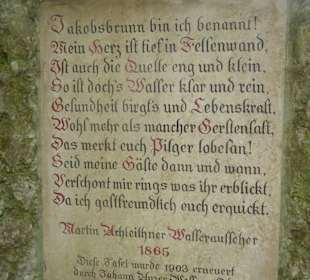 Jakobsbrunn bin ich benannt!
Mein Herz ist tief in Felsenwand,
Ist auch die Quelle eng und klein,
So ist doch's Wasser klar und rein,
Gesundheit birgt's und Lebenskraft,
Wohl mehr als mancher Gerstensaft,
Das merkt euch Pilger lobesan!
Seid meine Gäste dann und wann,
Verschont mir rings was ihr erblickt,
Da ich gastfreundlich euch erquickt.
Martin Achleithner Wasseraufseher
1865
Diese Tafel wurde 1903 erneuert
durch Johann